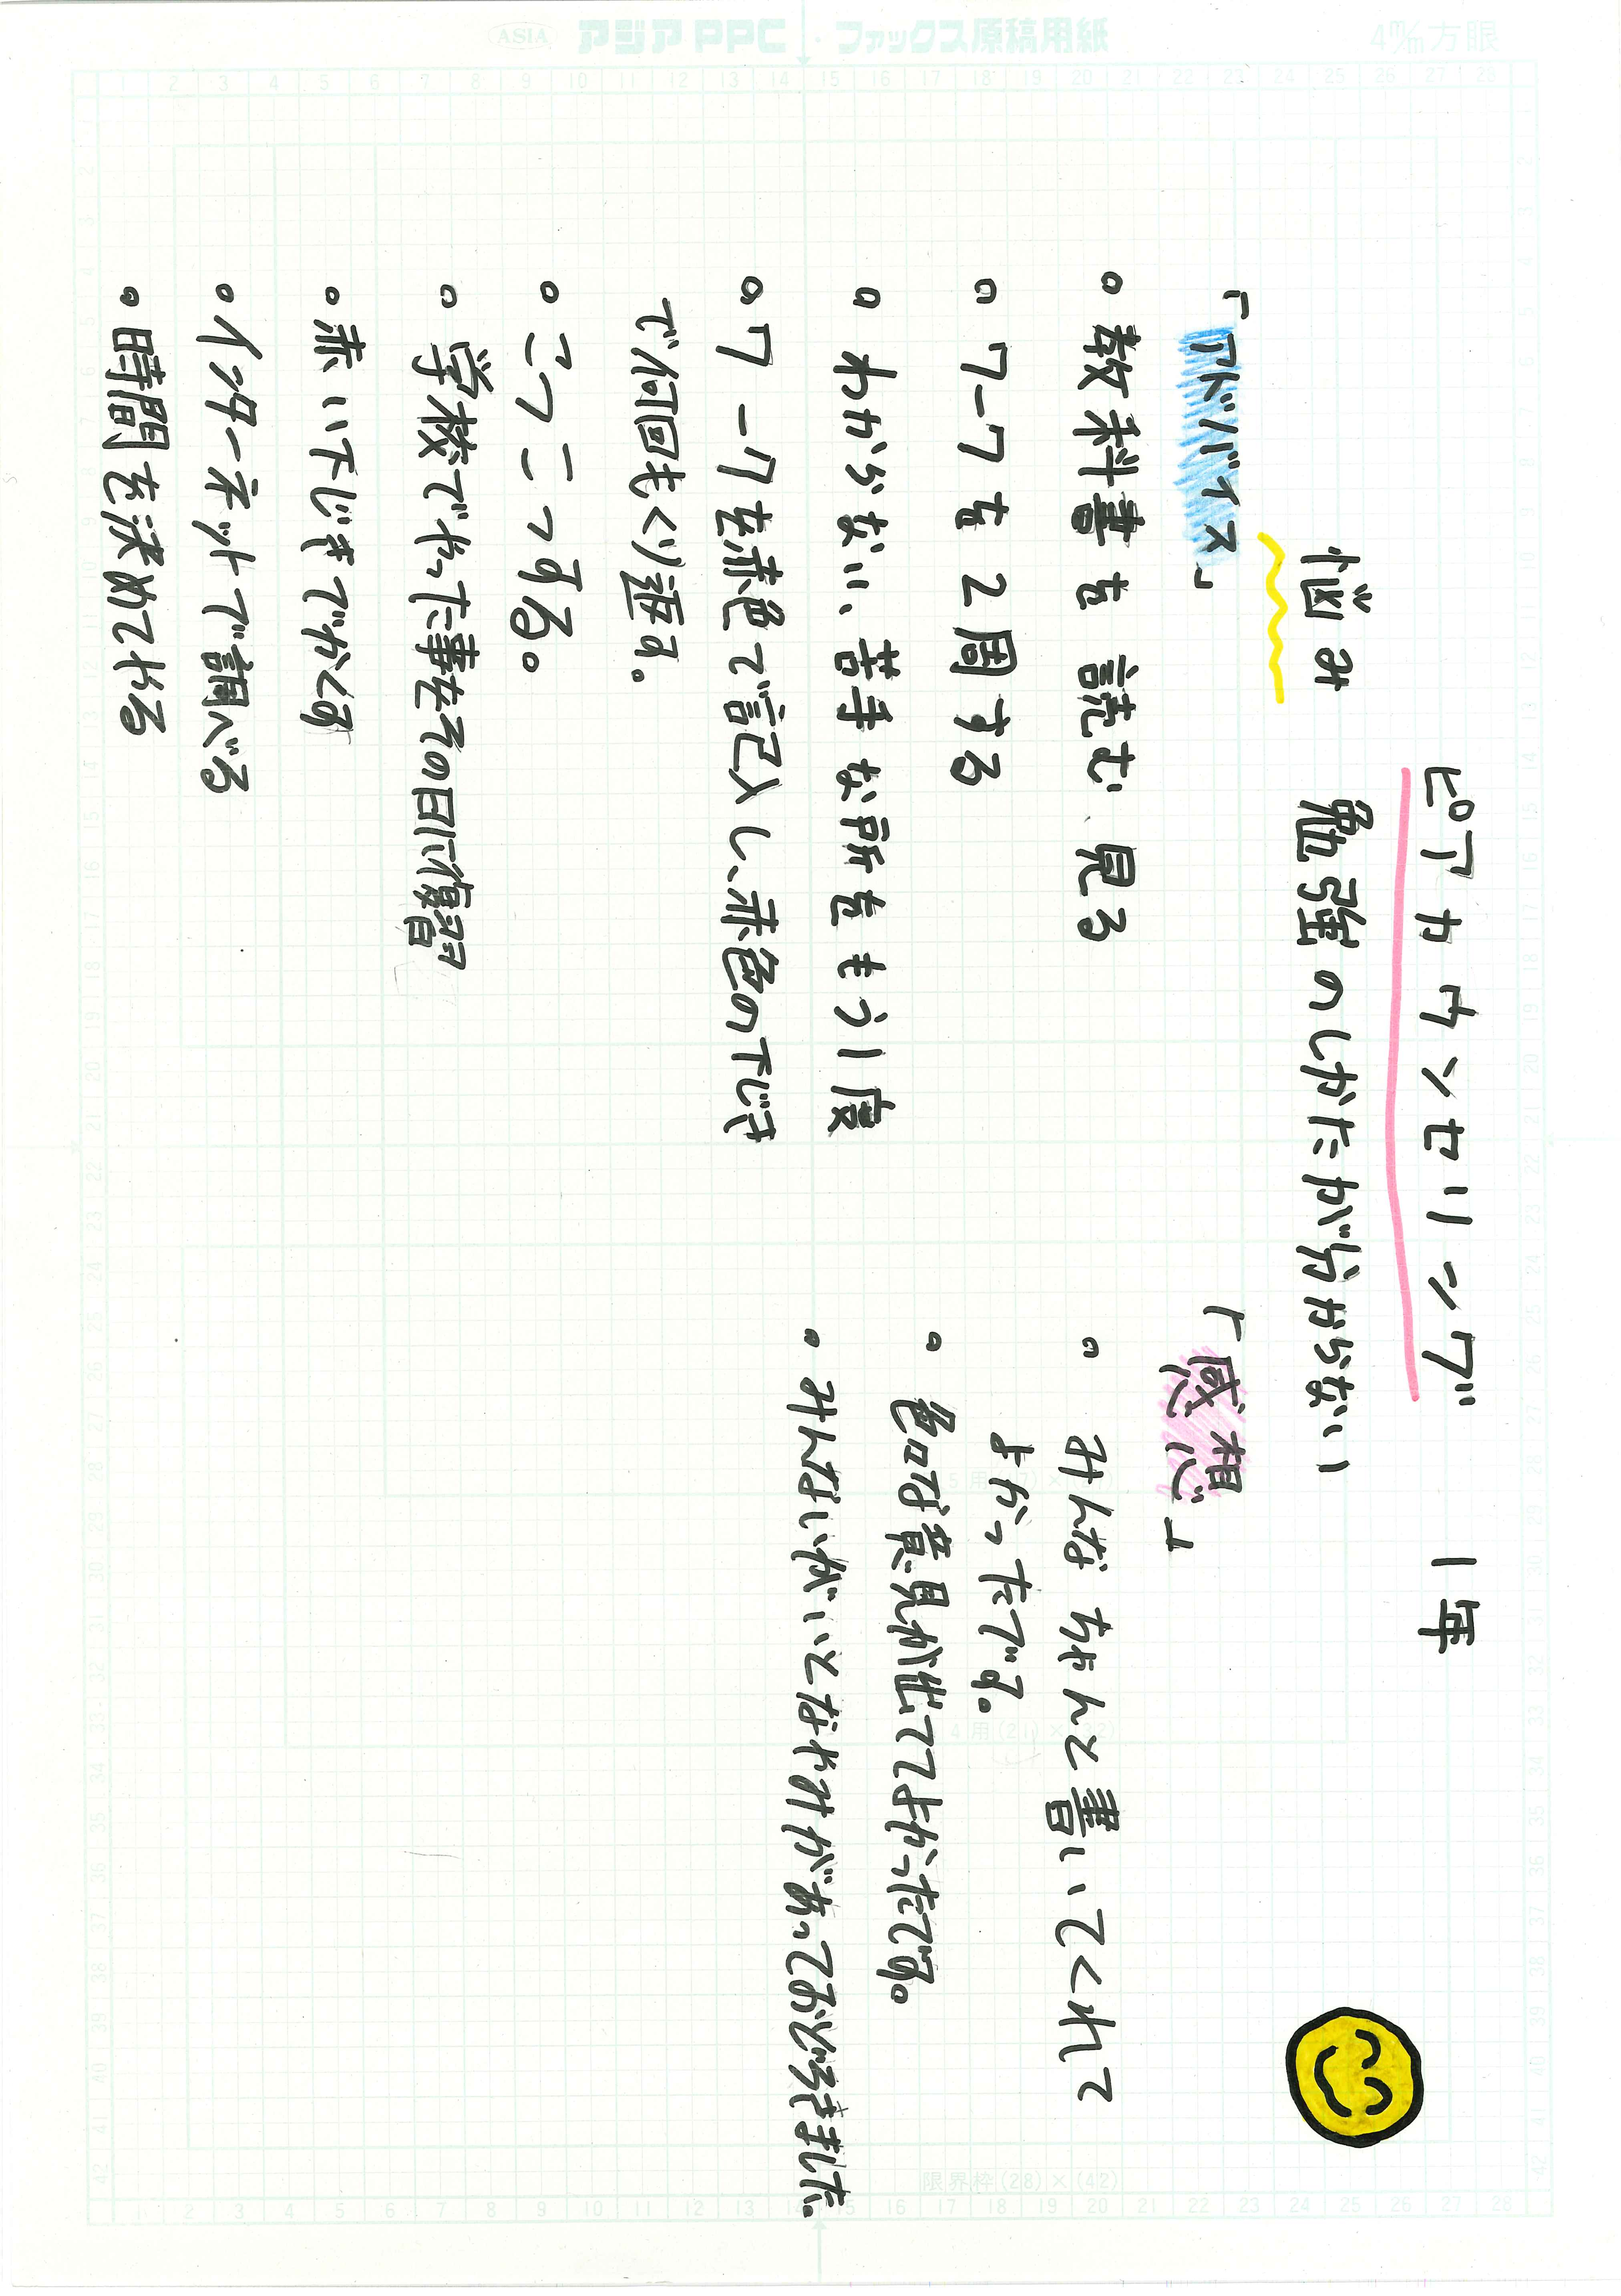 ピアカウンセリング 1年
悩み 勉強のしかたが分からない
「アドバイス」
数科書を読む、見る
ワークを2周する
わからない、苦手な所をもう1度
ワークを赤色で記入し、赤色の下じき
で何回もくり返す。
こつこつする。
学校でやった事をその日に復習
赤い下じきでかくす
インターネットで調べる
時間を決めてやる
「感想」
みんなちゃんと書いてくれて
よかったです。
色々な意見が出ててよかったです。
みんないがいとなやみがあっておどろきました。
ASIA アジア PPC・ファックス原稿用紙 4㎜方眼
限界枠(28)×(42)